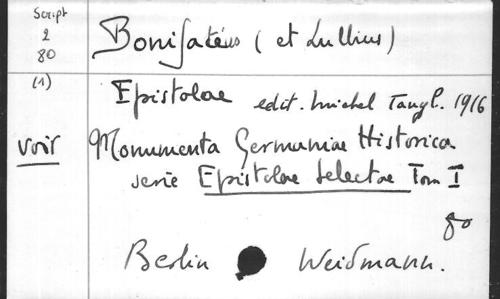 Script
2
80
(1)
Bonifatius (et Lullius)
Epistolae edit. Michel Tangl. 1916
voir Monumenta Germaniae Historica
serie Epistolae selectae Tom I
80
Berlin Weidmann.